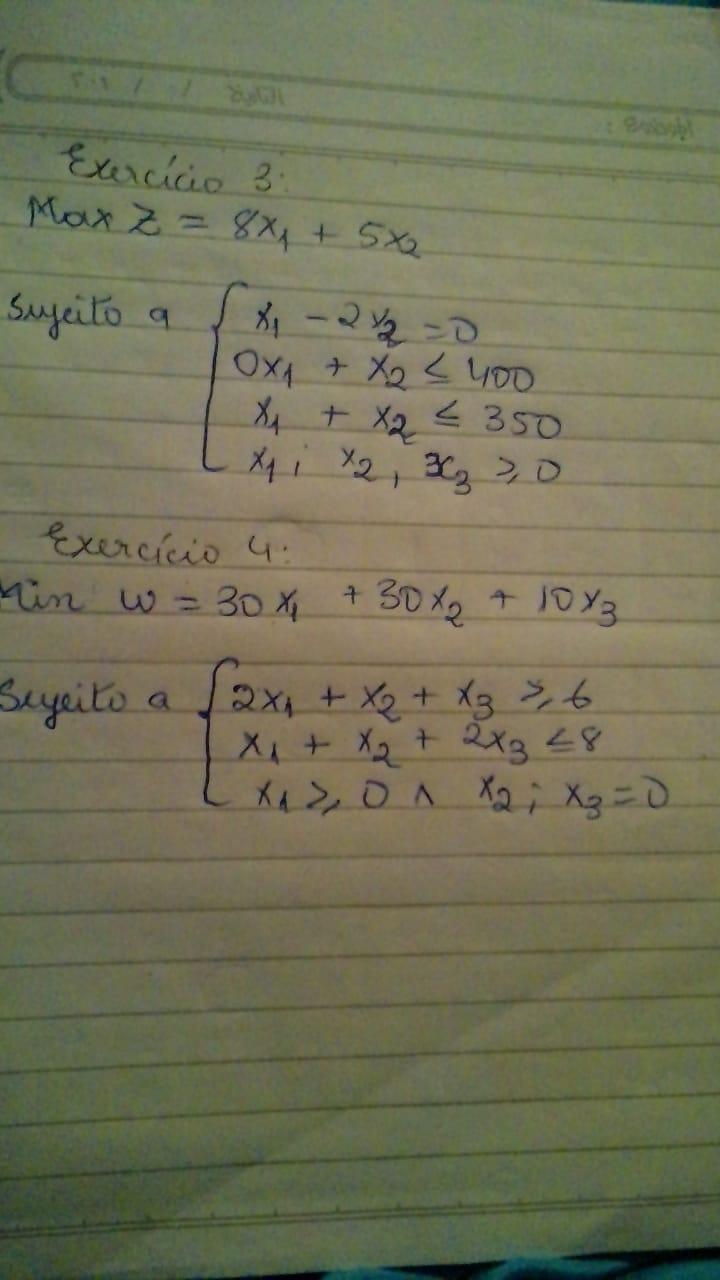 Exercício 3:
Max Z = 8x₁ + 5x₂
Sujeito a { x₁ - 2x₂ = 0
0x₁ + x₂ ≤ 400
x₁ + x₂ ≤ 350
x₁; x₂, x₃ ≥ 0
Exercício 4:
Min W = 30x₁ + 30x₂ + 10x₃
Sujeito a { 2x₁ + x₂ + x₃ ≥ 6
x₁ + x₂ + 2x₃ ≤ 8
x₁ ≥ 0 ∧ x₂; x₃ = 0